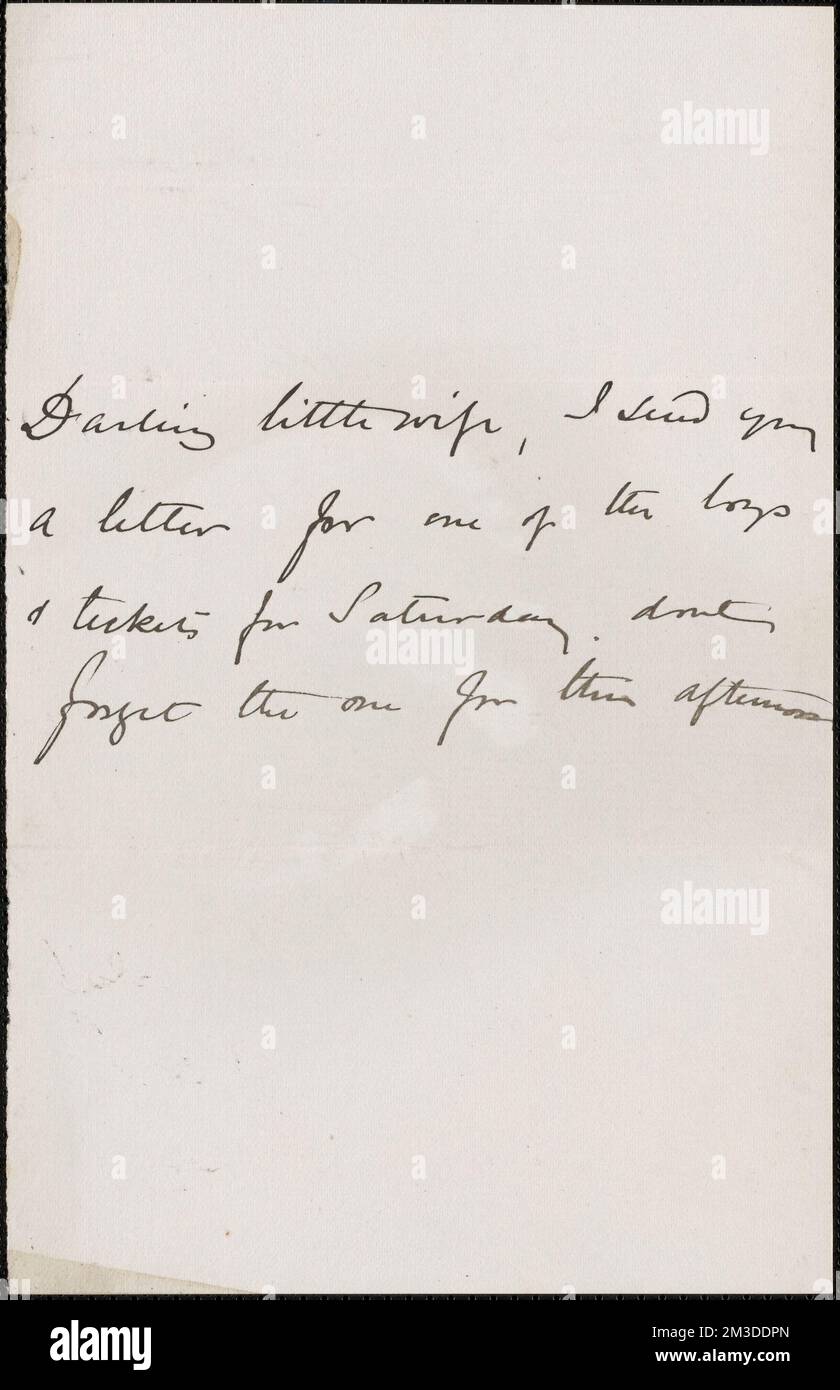 Darling little wife, I send you
a letter for one of the boys
& tickets for Saturday. dont
forget the one for this afternoon
alamy
Image ID: 2M3DDPN
www.alamy.com